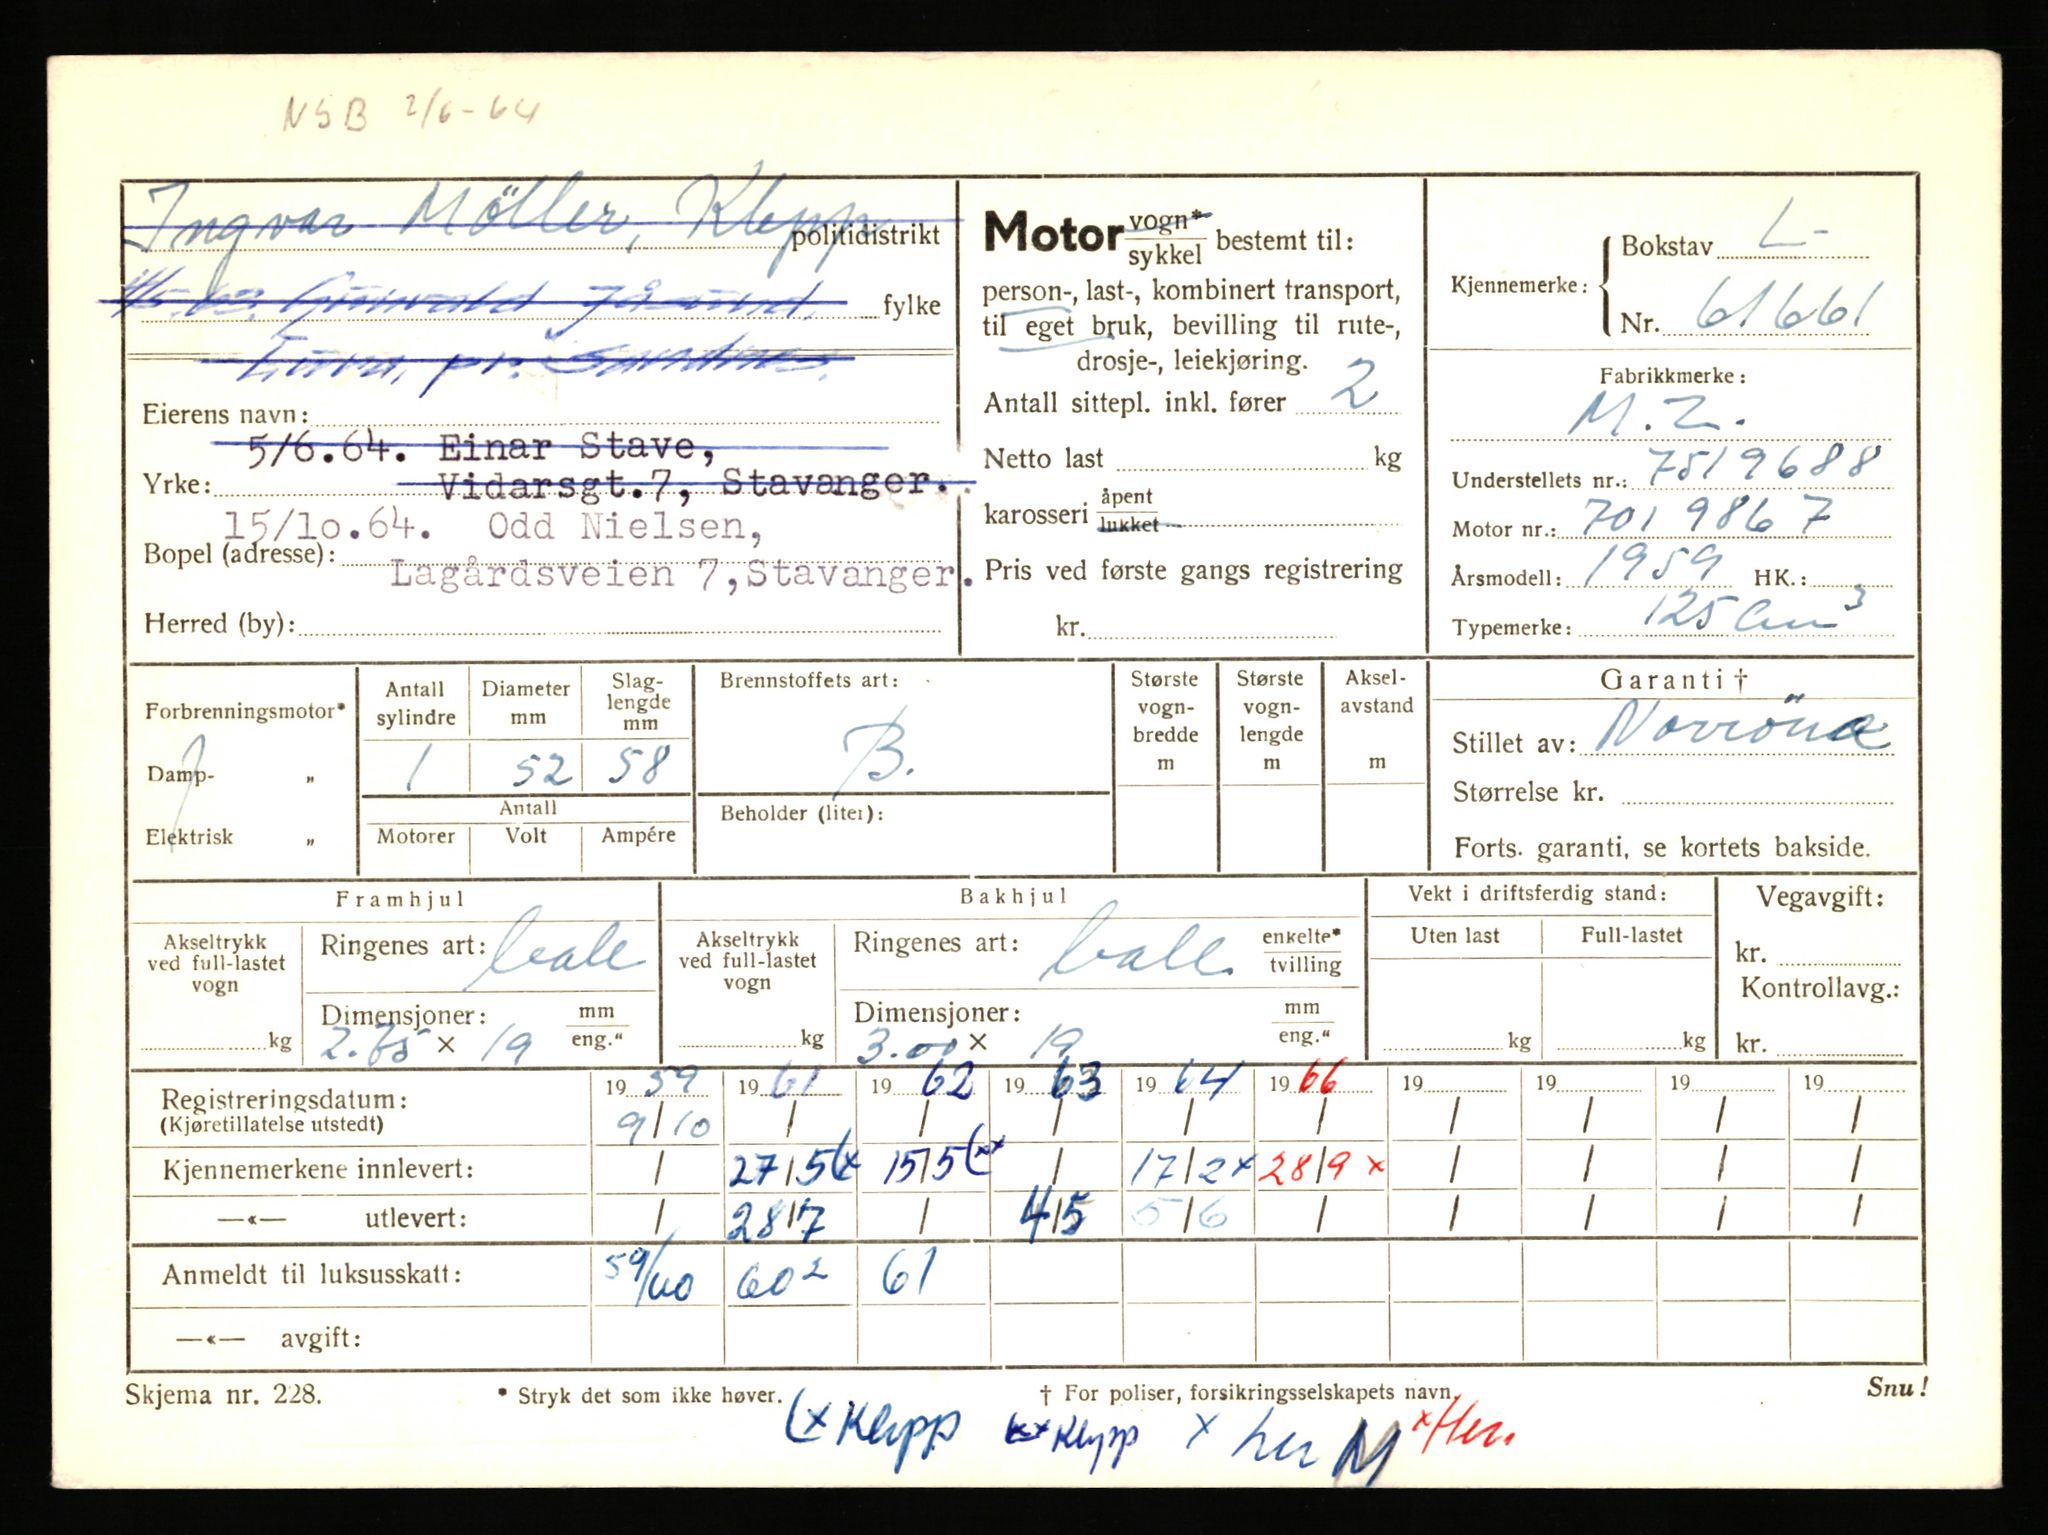 NSB 2/6-64
Ingvar Möller, Klepp
politidistrikt
fylke
pr. Sandnes.
Eierens navn:
5/6.64. Einar Stave,
Yrke: Vidarsgt.7, Stavanger.
15/10.64. Odd Nielsen,
Bopel (adresse):
Lagårdsveien 7, Stavanger.
Herred (by):
Motor vogn* / sykkel bestemt til:
person-, last-, kombinert transport,
til eget bruk, bevilling til rute-,
drosje-, leiekjøring.
Antall sittepl. inkl. fører 2
Netto last kg
karosseri åpent / lukket
Pris ved første gangs registrering
kr.
Kjennemerke: Bokstav L-
Nr. 61661
Fabrikkmerke:
M.Z.
Understellets nr.: 7519688
Motor nr.: 7019867
Årsmodell: 1959 HK.:
Typemerke: 125 cm³
Forbrenningsmotor*
Damp- „
Elektrisk „
Antall sylindre 1
Diameter mm 52
Slag-lengde mm 58
Antall
Motorer Volt Ampére
Brennstoffets art:
B.
Beholder (liter):
Største vogn-bredde m
Største vogn-lengde m
Aksel-avstand m
Garanti †
Stillet av: Norröna
Størrelse kr.
Forts. garanti, se kortets bakside.
Framhjul
Akseltrykk ved full-lastet vogn kg
Ringenes art: ball
Dimensjoner: mm / eng."
2.75 × 19
Bakhjul
Akseltrykk ved full-lastet vogn kg
Ringenes art: ball. enkelte* / tvilling
Dimensjoner: mm / eng."
3.00 × 19
Vekt i driftsferdig stand:
Uten last Full-lastet
kg kg
Vegavgift:
kr.
Kontrollavg.:
kr.
19 59 19 61 19 62 19 63 19 64 19 66 19 19 19 19
Registreringsdatum: 9/10 / / / / / / / / /
(Kjøretillatelse utstedt)
Kjennemerkene innlevert: / 27/5 (x 15/5 (xx / 17/2 x 28/9 x / / / /
—«— utlevert: / 28/7 / 4/5 5/6 / / / / /
Anmeldt til luksusskatt: 59/60 60² 61
—«— avgift:
Skjema nr. 228. * Stryk det som ikke høver. † For poliser, forsikringsselskapets navn. Snu!
(x Klepp xx Klepp x her M x Her.